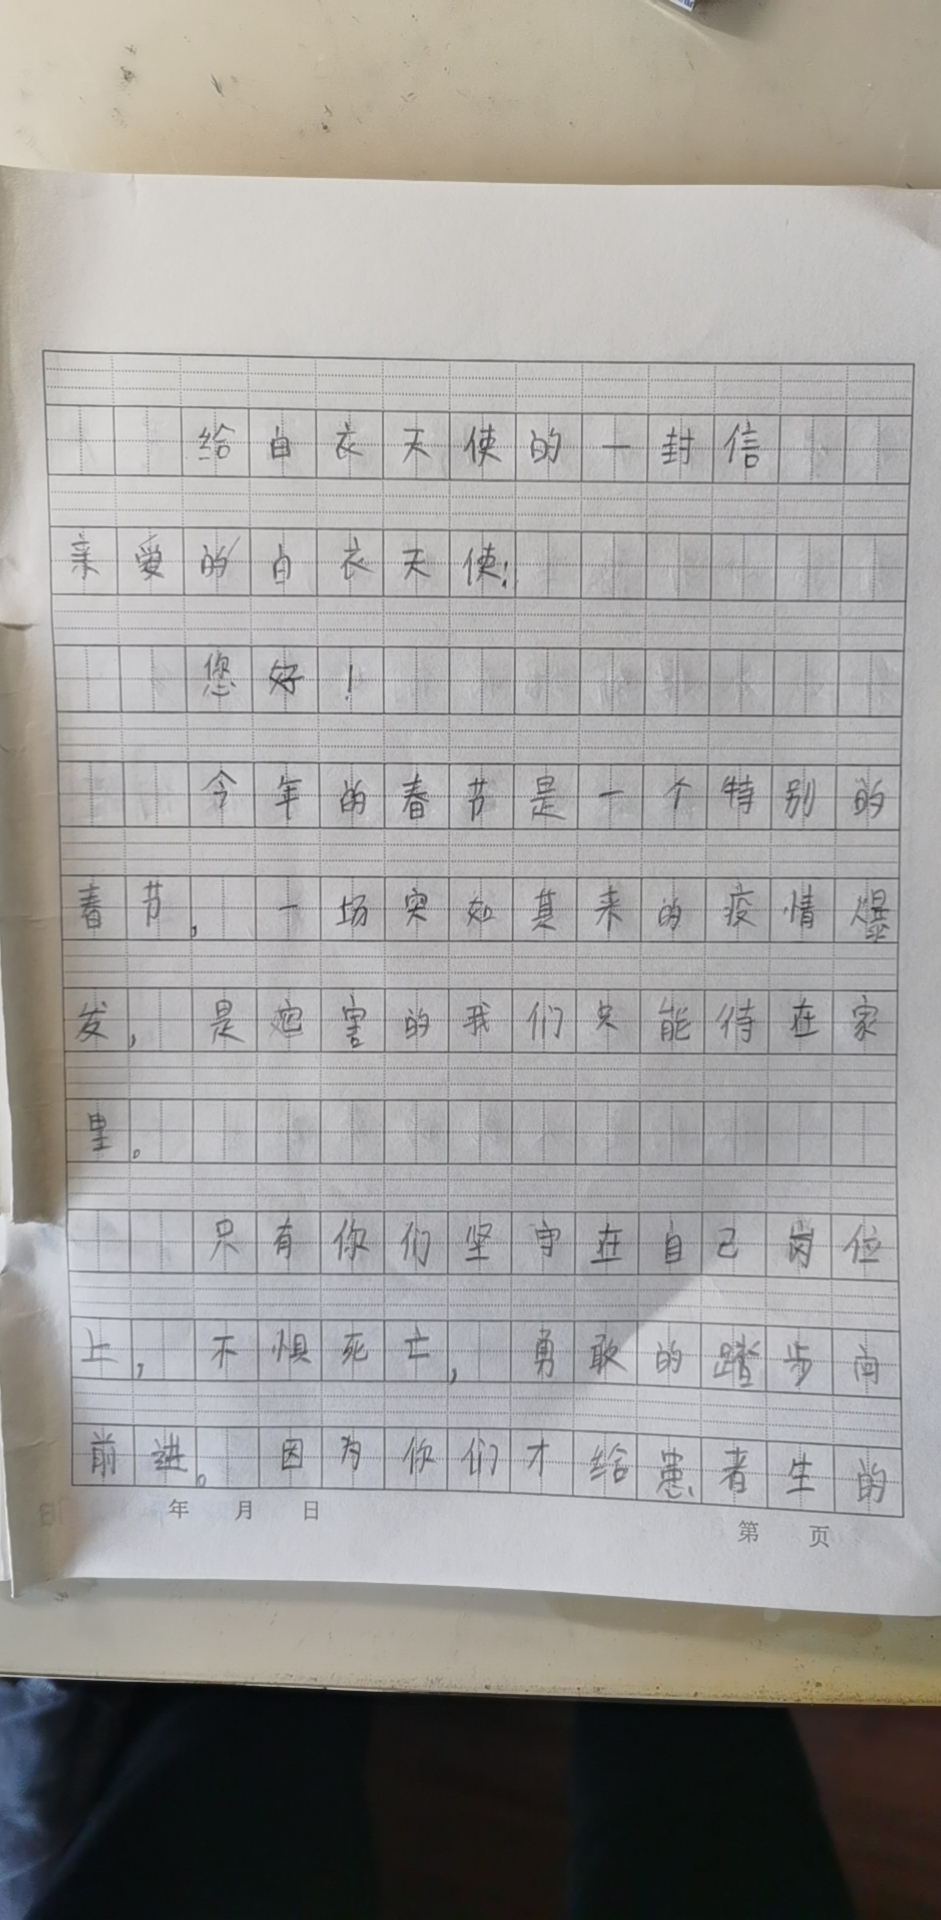 给白衣天使的一封信
亲爱的白衣天使:
您好!
今年的春节是一个特别的
春节,一场突如其来的疫情爆
发,是害的我们只能待在家
里。
只有你们坚守在自己岗位
上,不惧死亡,勇敢的踏步向
前进。因为你们才给患者生的
年 月 日
第 页